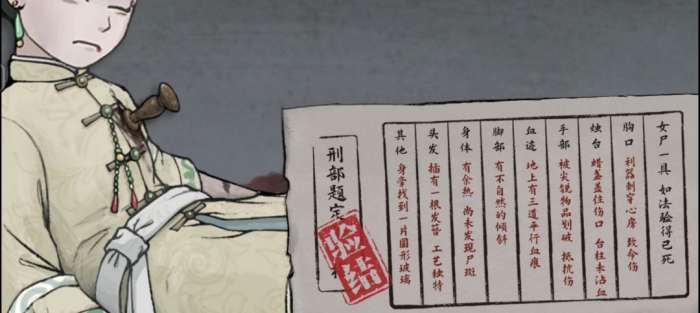 女尸一具 如法验得已死
胸口 利器刺穿心房 致命伤
烛台 蜡盏盖住伤口 台柱未沾血
手部 被尖锐物品划破 抵抗伤
血迹 地上有三道平行血痕
脚部 有不自然的倾斜
身体 有余热 尚未发现尸斑
头发 插有一根发簪 工艺独特
其他 身旁找到一片圆形玻璃
刑部题定
验结